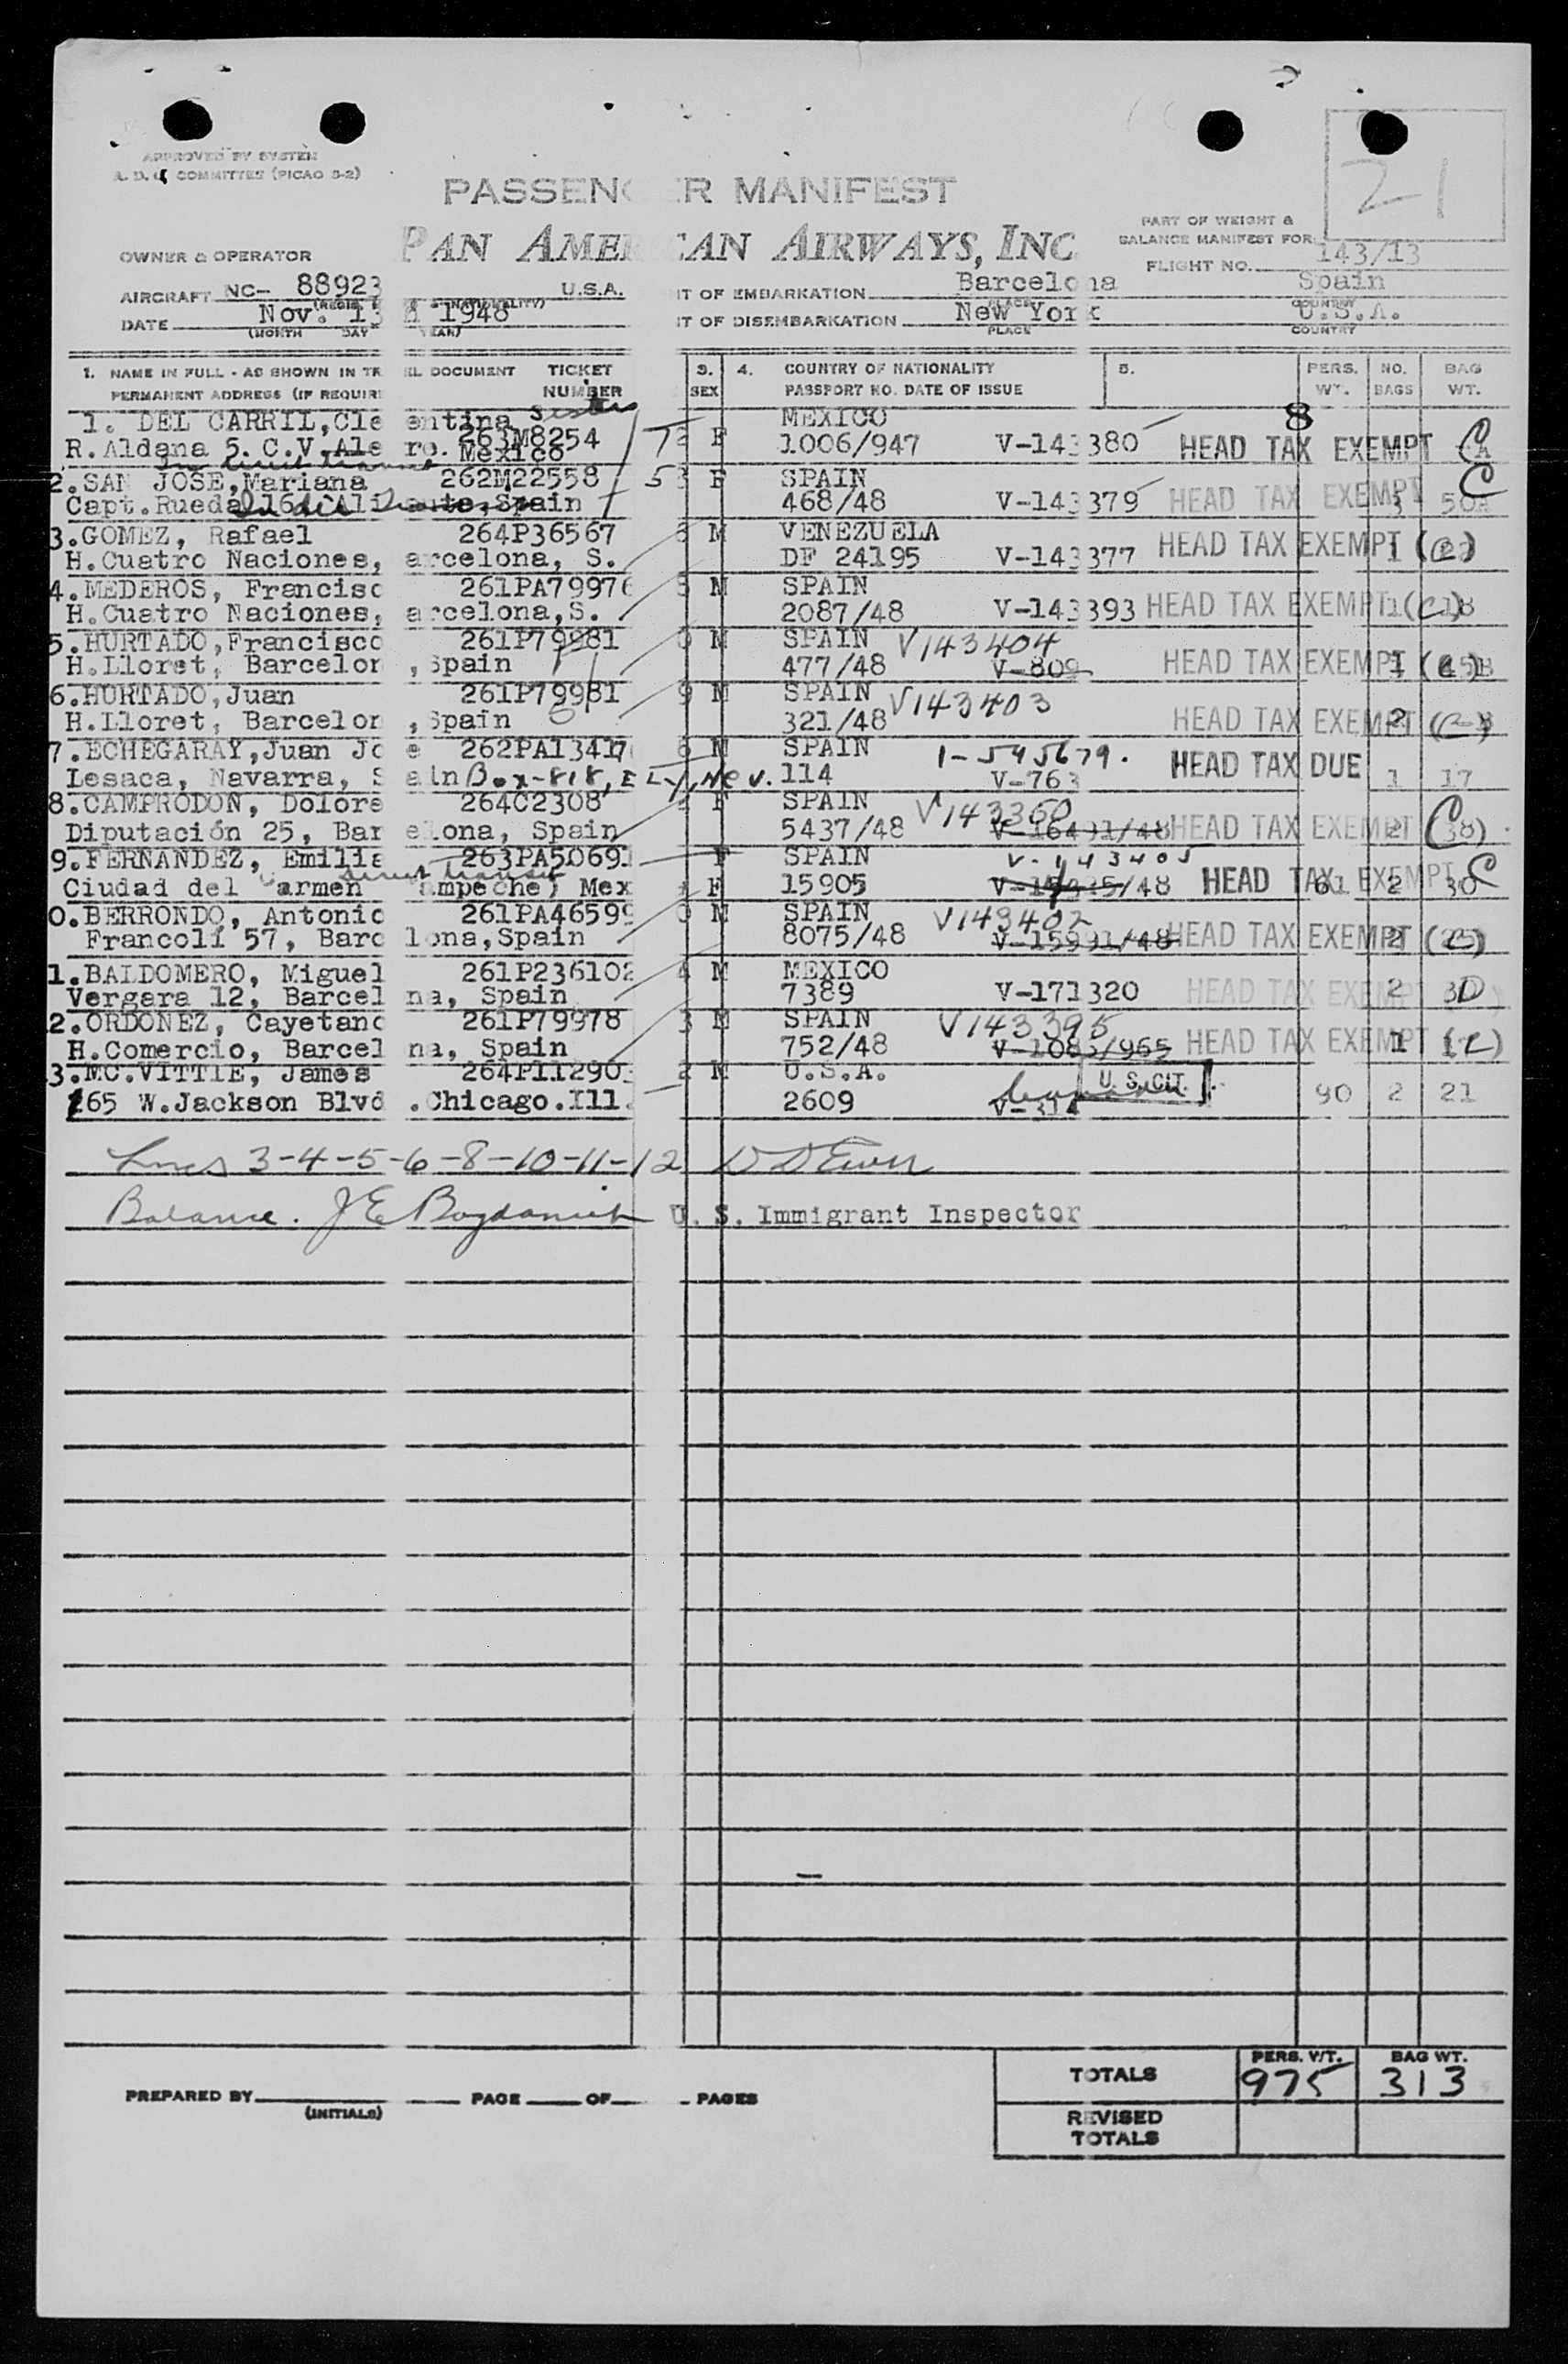 21
APPROVED BY SYSTEM
COMMITTEE (PICAO S-2)
PASSENGER MANIFEST
PART OF WEIGHT &
BALANCE MANIFEST FOR
PAN AMERICAN AIRWAYS, INC
OWNER & OPERATOR
FLIGHT NO. 143/13
AIRCRAFT NC- 88923 U.S.A. T OF EMBARKATION Barcelona Spain
(NATIONALITY) PLACE COUNTRY
DATE Nov. 13 1948 T OF DISEMBARKATION New York U.S.A.
(MONTH DAY YEAR) PLACE COUNTRY
1. NAME IN FULL - AS SHOWN IN TR EL DOCUMENT TICKET 3. 4. COUNTRY OF NATIONALITY 5. PERS. NO. BAG
PERMANENT ADDRESS (IF REQUIR NUMBER SEX PASSPORT NO. DATE OF ISSUE WT. BAGS WT.
1. DEL CARRIL, Cle entina MEXICO 8
R. Aldana 5. C.V. Ale ro. Mexico 263M8254 F 1006/947 V-143380 HEAD TAX EXEMPT C
2. SAN JOSE, Mariana 262M22558 53 F SPAIN C
Capt. Rueda 16 Ali Spain 468/48 V-143379 HEAD TAX EXEMPT 3 50
3. GOMEZ, Rafael 264P36567 8 M VENEZUELA
H. Cuatro Naciones, arcelona, S. DF 24195 V-143377 HEAD TAX EXEMPT 1 (C)
4. MEDEROS, Francisc 261PA79976 M SPAIN
H. Cuatro Naciones, arcelona, S. 2087/48 V-143393 HEAD TAX EXEMPT 1 (C) 18
5. HURTADO, Francisco 261P79981 M SPAIN V143404
H. Lloret, Barcelon , Spain 477/48 V-809 HEAD TAX EXEMPT 1 (C)
6. HURTADO, Juan 261P79981 9 M SPAIN V143403
H. Lloret, Barcelon , Spain 321/48 HEAD TAX EXEMPT 2 (C)
7. ECHEGARAY, Juan Jo e 262PA13417 8 M SPAIN 1-545679.
Lesaca, Navarra, S ain Box-818, ELY, Nev. 114 V-763 HEAD TAX DUE 1 17
8. CAMPRODON, Dolore 264C2308 F SPAIN V143360
Diputación 25, Bar elona, Spain 5437/48 V-16491/48 HEAD TAX EXEMPT 2 C 38)
9. FERNANDEZ, Emilia 263PA50691 F SPAIN V-143405
Ciudad del Carmen Campeche) Mex F 15905 /48 HEAD TAX EXEMPT 61 2 30 C
0. BERRONDO, Antonio 261PA46599 M SPAIN V143402
Francolí 57, Barc lona, Spain 8075/48 V-15991/48 HEAD TAX EXEMPT 2 (C)
1. BALDOMERO, Miguel 261P236102 4 M MEXICO
Vergara 12, Barcel na, Spain 7389 V-171320 HEAD TAX EXEMPT 2 D
2. ORDONEZ, Cayetano 261P79978 3 M SPAIN V143395
H. Comercio, Barcel na, Spain 752/48 V-1085/965 HEAD TAX EXEMPT 1 (C)
3. MC. VITTIE, James 264P11290 2 M U.S.A. U. S. CIT.
165 W. Jackson Blvd .Chicago. Ill. 2609 V-314 90 2 21
Lines 3-4-5-6-8-10-11-12 D D Ewen
Balance. J E Bogdanich U. S. Immigrant Inspector
PERS. WT. BAG WT.
TOTALS 975 313
PREPARED BY PAGE OF PAGES
(INITIALS)
REVISED
TOTALS